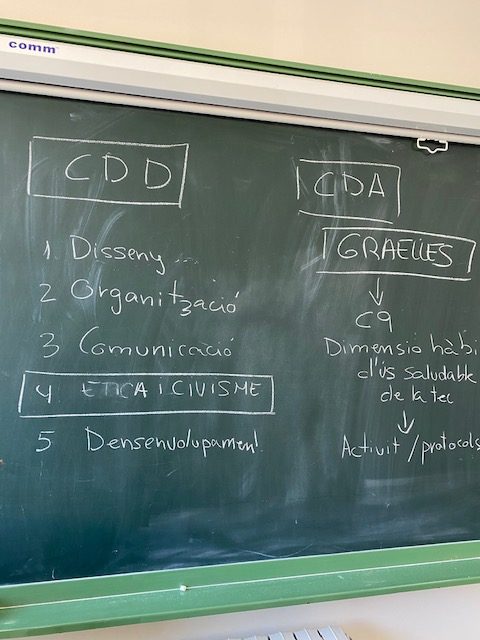 comm
CDD
1 Disseny...
2 Organització
3 Comunicació
4 ETICA I CIVISME
5 Densenvolupament
CDA
GRAELLES
↓
C9
Dimensió hàbi
d'ús saludable
de la tec
↓
Activit/protocols